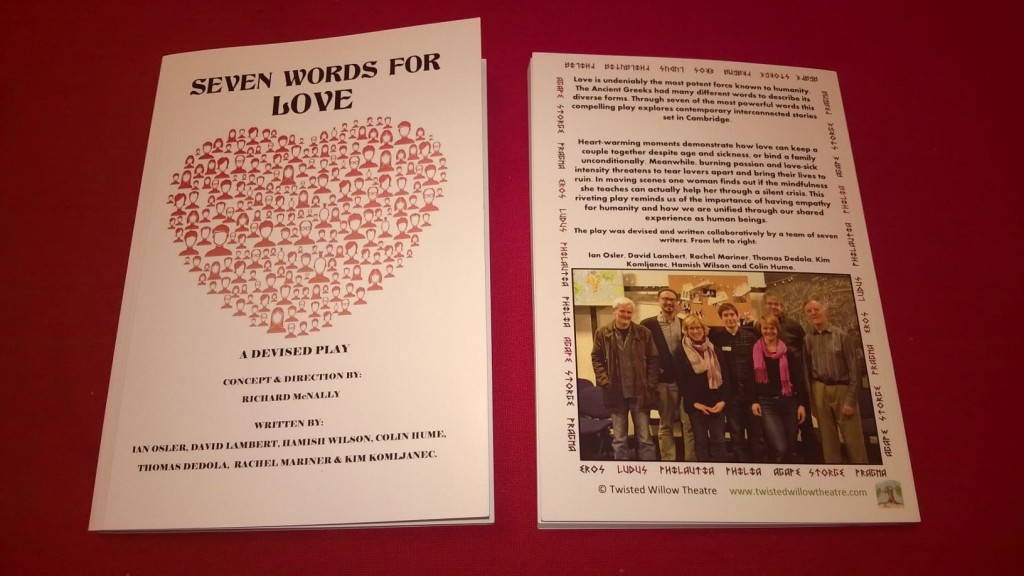 SEVEN WORDS FOR
LOVE
A DEVISED PLAY
CONCEPT & DIRECTION BY:
RICHARD McNALLY
WRITTEN BY:
IAN OSLER, DAVID LAMBERT, HAMISH WILSON, COLIN HUME,
THOMAS DEDOLA, RACHEL MARINER & KIM KOMLJANEC.
Love is undeniably the most potent force known to humanity.
The Ancient Greeks had many different words to describe its
diverse forms. Through seven of the most powerful words this
compelling play explores contemporary interconnected stories
set in Cambridge.
Heart-warming moments demonstrate how love can keep a
couple together despite age and sickness, or bind a family
unconditionally. Meanwhile, burning passion and love-sick
intensity threatens to tear lovers apart and bring their lives to
ruin. In moving scenes one woman finds out if the mindfulness
she teaches can actually help her through a silent crisis. This
riveting play reminds us of the importance of having empathy
for humanity and how we are unified through our shared
experience as human beings.
The play was devised and written collaboratively by a team of seven
writers. From left to right:
Ian Osler, David Lambert, Rachel Mariner, Thomas Dedola, Kim
Komljanec, Hamish Wilson and Colin Hume.
AGAPE STORGE PRAGMA EROS LUDUS PHILAUTIA PHILIA AGAPE STORGE PRAGMA
AGAPE STORGE PRAGMA EROS LUDUS PHILAUTIA PHILIA AGAPE STORGE PRAGMA
EROS LUDUS PHILAUTIA PHILIA AGAPE STORGE PRAGMA
© Twisted Willow Theatre www.twistedwillowtheatre.com